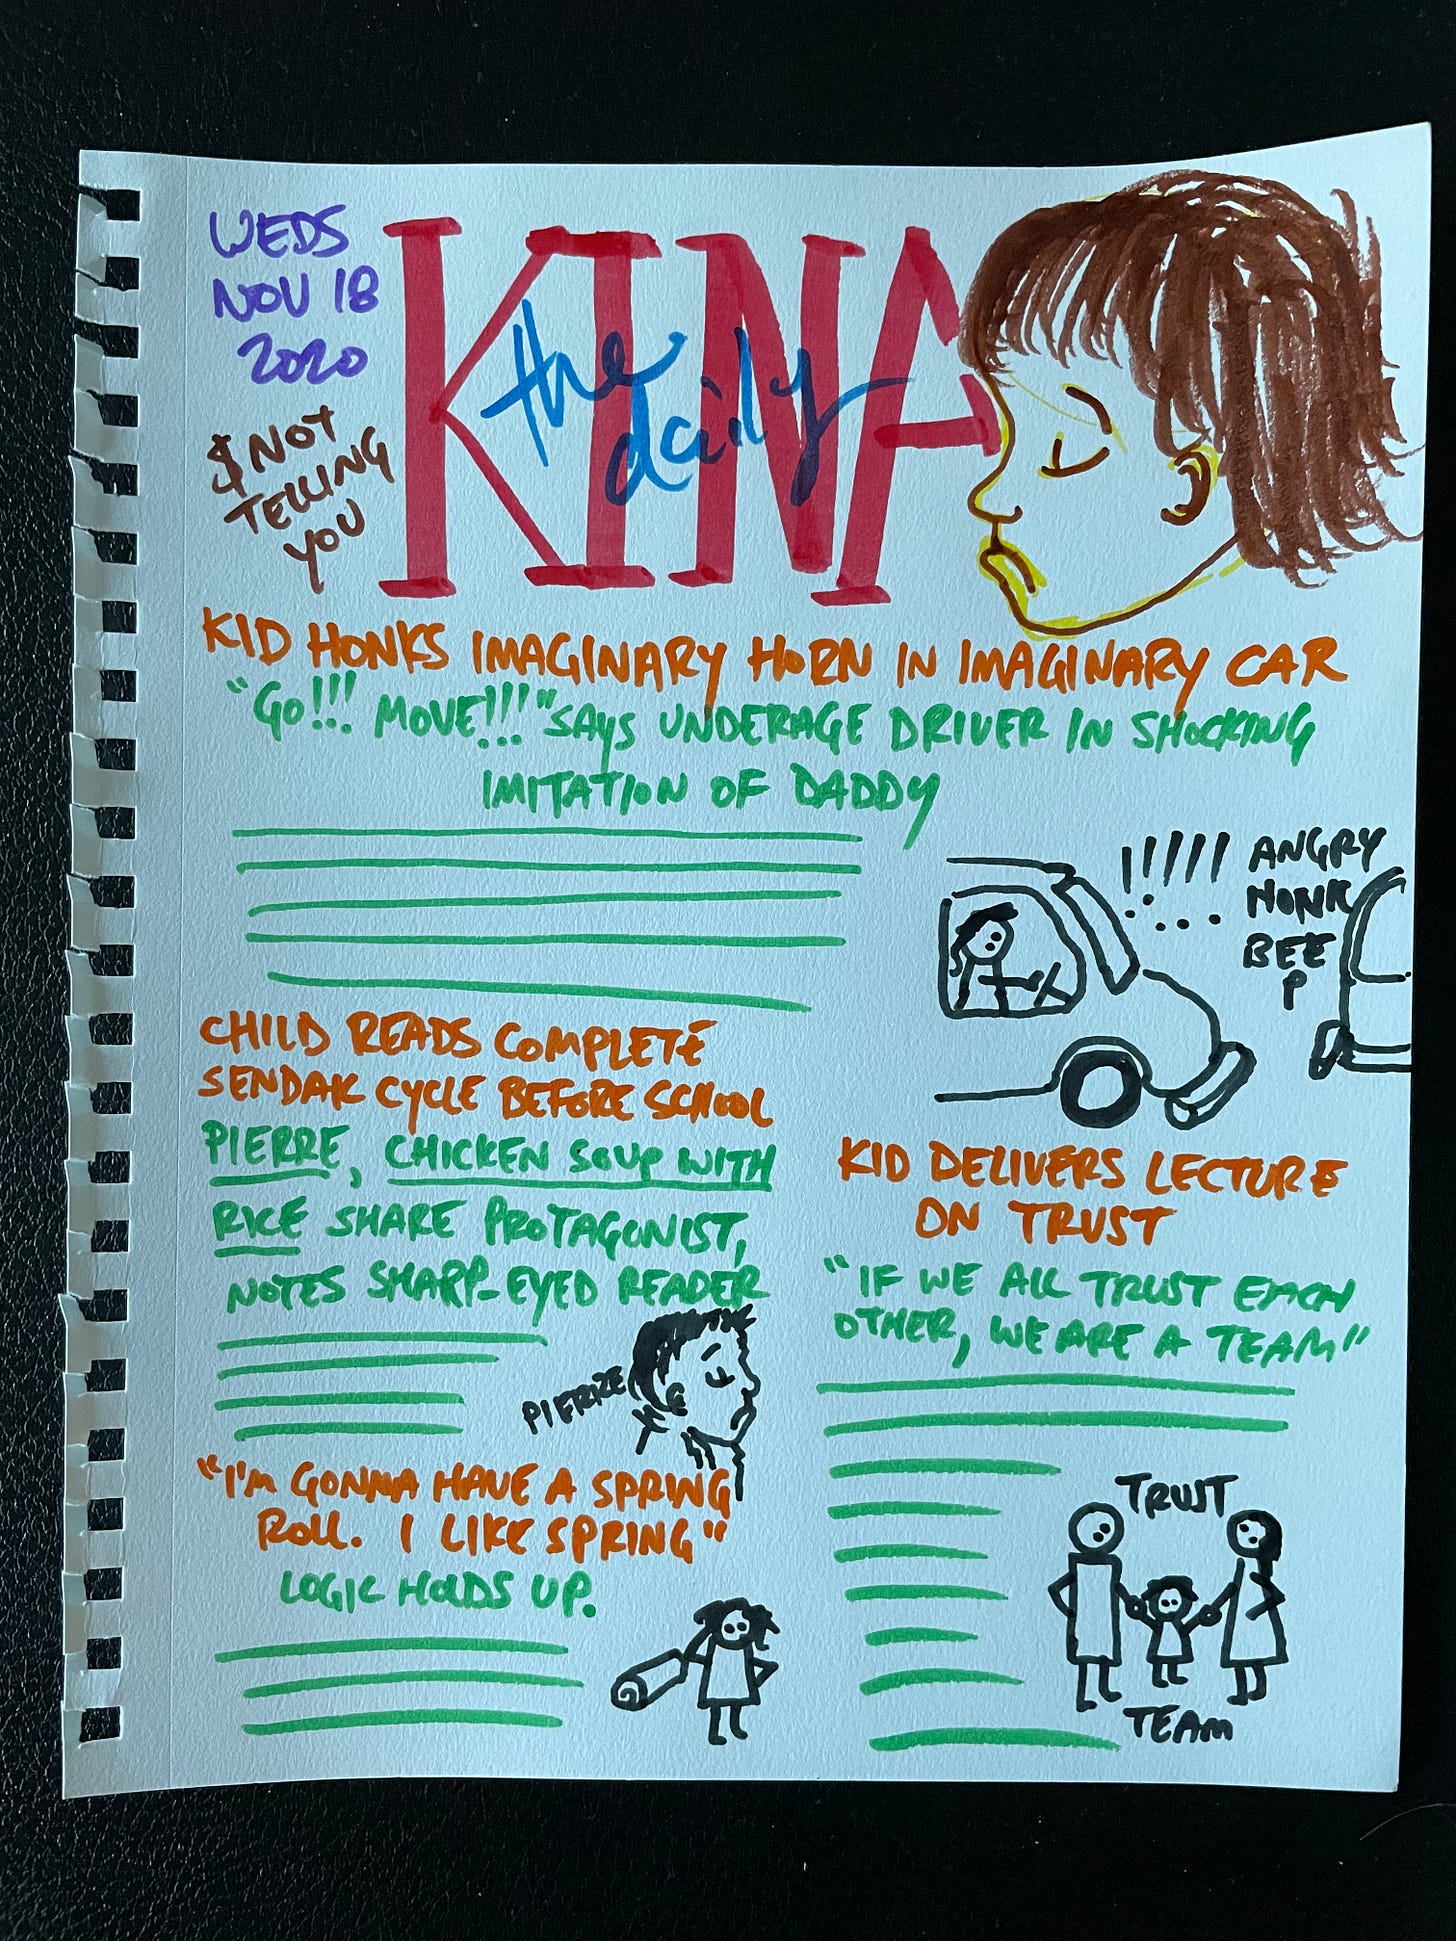 WEDS
NOV 18
2020
$ NOT
TELLING
YOU
KINA
the
daily
KID HONKS IMAGINARY HORN IN IMAGINARY CAR
"GO!!! MOVE!!!" SAYS UNDERAGE DRIVER IN SHOCKING
IMITATION OF DADDY
!!!!!
ANGRY
HONK
BEE
P
CHILD READS COMPLETE
SENDAK CYCLE BEFORE SCHOOL
PIERRE, CHICKEN SOUP WITH
RICE SHARE PROTAGONIST,
NOTES SHARP-EYED READER
PIERRE
"I'M GONNA HAVE A SPRING
ROLL. I LIKE SPRING"
LOGIC HOLDS UP.
KID DELIVERS LECTURE
ON TRUST
"IF WE ALL TRUST EACH
OTHER, WE ARE A TEAM"
TRUST
TEAM